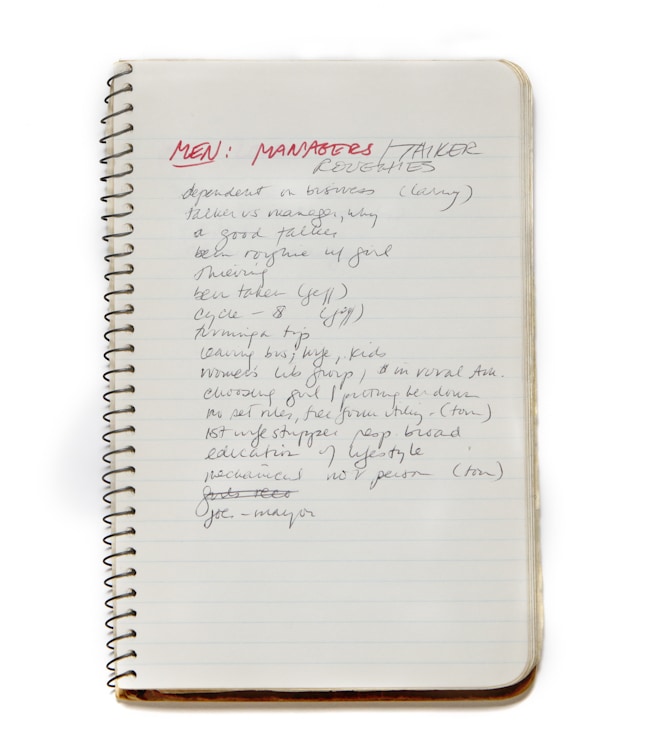 MEN: MANAGERS / TALKER
ROUGHIES
dependent on business (larry)
talker vs manager, why
a good talker
been w/ girl
thieving
been taken (jeff)
cycle – $ (jeff)
turning a tip
leaving bus; wife, kids
women's lib group, & in rural Am.
choosing girl / putting her down
no set rules, free form utility – (tom)
1st wife stripper resp. broad
education of lifestyle
mechanical not person (tom)
girls
joe – mayor